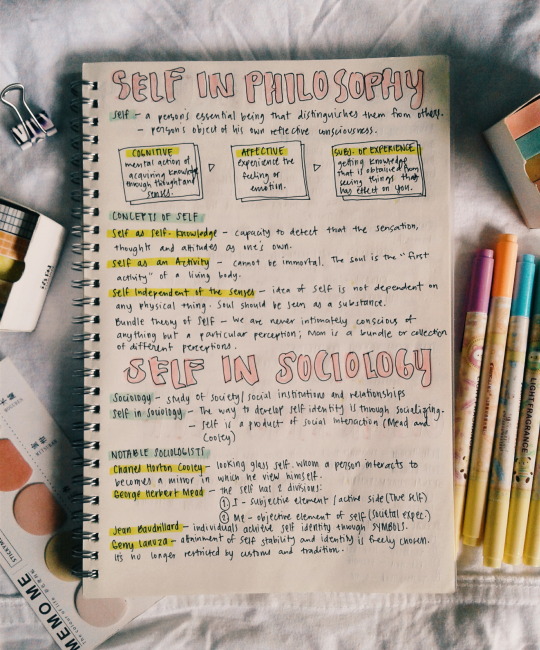 SELF IN PHILOSOPHY
Self - a person's essential being that distinguishes them from others.
- person's object of his own reflective consciousness.
COGNITIVE
mental action of
acquiring knowledge
through thought and
senses.
AFFECTIVE
experience the
feeling or
emotion.
SUBS. OF EXPERIENCE
getting knowledge
that is obtained from
seeing things that
has effect on you.
CONCEPTS OF SELF
Self as self-knowledge - capacity to detect that the sensation,
thoughts and attitudes as one's own.
Self as an Activity - cannot be immortal. The soul is the "first
activity" of a living body.
Self Independent of the senses - idea of self is not dependent on
any physical thing. Soul should be seen as a substance.
Bundle theory of self - we are never intimately conscious of
anything but a particular perception; Man is a bundle or collection
of different perceptions.
SELF IN SOCIOLOGY
Sociology - study of society/social institutions and relationships
Self in Sociology - The way to develop self identity is through socializing.
- Self is a product of social interaction (Mead and
Cooley)
NOTABLE SOCIOLOGISTS
Charles Horton Cooley - looking glass self. whom a person interacts to
becomes a mirror in which he view himself.
George Herbert Mead - the self has 2 divisions:
① I - subjective element / active side (True self)
② Me - objective element of self (societal expec.)
Jean Baudrillard - individuals achieve self identity through SYMBOLS.
Gerry Lanuza - attainment of self stability and identity is freely chosen.
Its no longer restricted by customs and tradition.
MEMOME
LIGHT FRAGRANCE